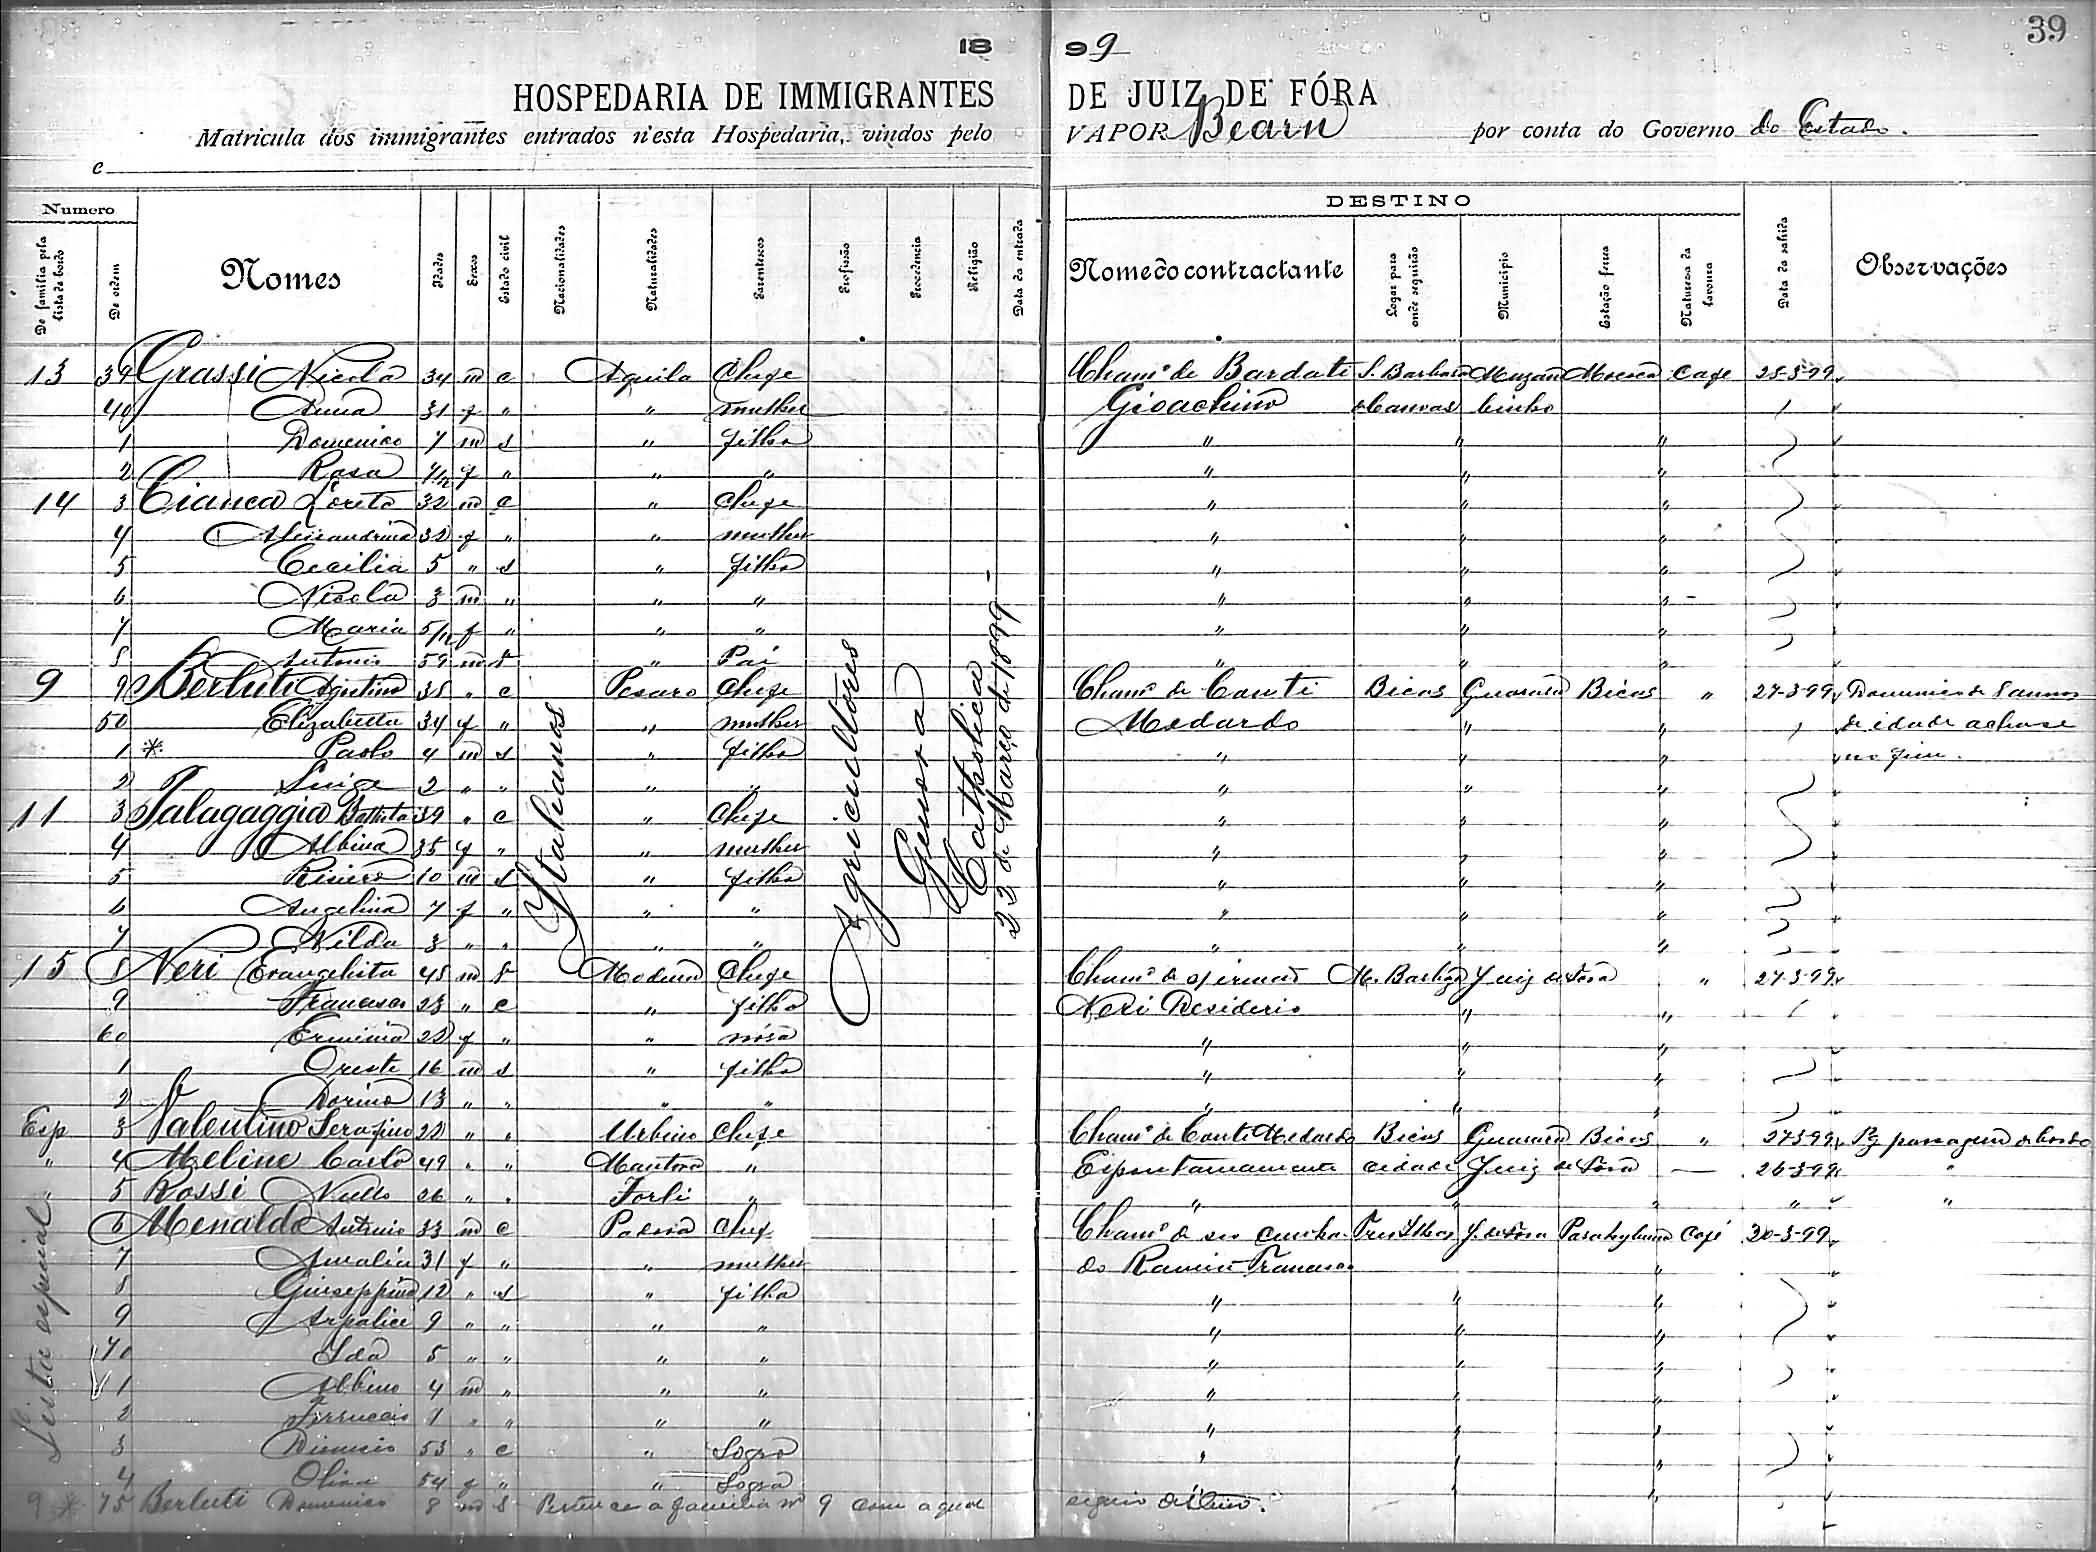 39
18 99
HOSPEDARIA DE IMMIGRANTES DE JUIZ DE FÓRA
Matricula dos immigrantes entrados n'esta Hospedaria, vindos pelo VAPOR Bearn por conta do Governo do Estado.
e
Numero DESTINO
De familia pela lista de bordo De ordem Nomes Idades Sexos Estado civil Nacionalidades Naturalidades Parentescos Profissão Procedencia Religião Data da entrada Nome do contractante Logar para onde seguirão Municipio Estação ferrea Natureza da lavoura Data da sahida Observações
Italianos
Agricultores
Genova
Catholica
22 de Março de 1899
13 39 Grassi Nicola 34 m c Aquila Chefe Cham.º de Bardati S. Barbara Cafe 25-3-99
40 Anna 31 f " " mulher Gioachino
1 Domenico 7 m s " filho " " "
2 Rosa f " " " " " "
14 3 Cianca Loreto 32 m c " Chefe " " "
4 Alessandrina 32 f " " mulher " " "
5 Cecilia 5 " s " filha " " "
6 Nicola 3 m " " " " " "
7 Maria 5/12 f " " " " " "
8 Antonio 59 m " Pai " " "
9 9 Berluti Agostino 38 " c Pesaro Chefe Cham.º de Conti Bicas Guarará Bicas " 27-3-99 Domenico de 8 annos
50 Elizabetta 34 f " " mulher Medardo " " de idade acha-se
1 * Paolo 4 m s " filho " " " no fim.
2 Luige 2 " " " " " " "
11 3 Palagaggia Battista 39 " c " Chefe " " "
4 Albina 35 f " " mulher " " "
5 10 m s " filho " " "
6 Angelina 7 f " " " " " "
7 Nilda 3 " " " " " " "
15 8 Neri Evangelista 48 m Modena Chefe Cham.º de Juiz de Fóra " 27-3-99
9 Francesco 23 " c " filho Neri Desiderio " "
60 Erminia 22 f " " nóra " " "
1 Oreste 16 m s " filho " " "
2 Dorino 13 " " " " " " "
Esp 3 Valentino Serafino 22 " " Urbino Chefe Cham.º de Conti Medardo Bicas Guarará Bicas " 27-3-99 Pg passagem de bordo
" 4 Meline Carlo 49 " " Mantova " Espontaneamente cidade Juiz de Fóra — 26-3-99 "
" 5 Rossi Nullo 26 " " Forli " " " " " "
Lista especial
6 Menaldo Antonio 33 m c Padova Chefe Cham.º de seo cunha- Tres Ilhas J. de Fóra Parahybuna Café 30-3-99
7 Amalia 31 f " " mulher do Francesco "
8 Giuseppina 12 " s " filha " " "
9 Arpalice 9 " " " " " " "
70 Ida 5 " " " " " " "
1 Albino 4 m " " " " " "
2 Ferruccio 1 " " " " " " "
3 53 " c " Sogro " " "
4 54 f " " Sogra " "
9 * 75 Berluti Domenico 8 m s Pertence a familia nº 9 com a qual seguio destino.